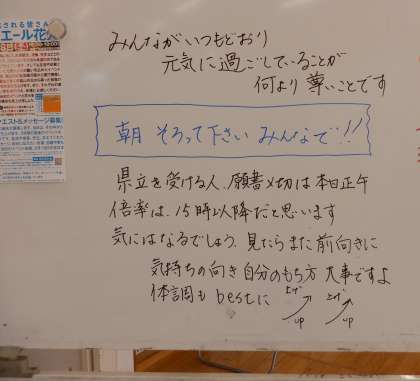 される皆さん
エール花火
エスト&メッセージ募集!
みんながいつもどおり
元気に過ごしていることが
何より尊いことです
朝 そろって下さい みんなで!!
県立を受ける人、願書〆切は本日正午
倍率は、15時以降だと思います
気にはなるでしょう、見たらまた前向きに
気持ちの向き 自分のもち方 大事ですよ
体調も bestに
up up